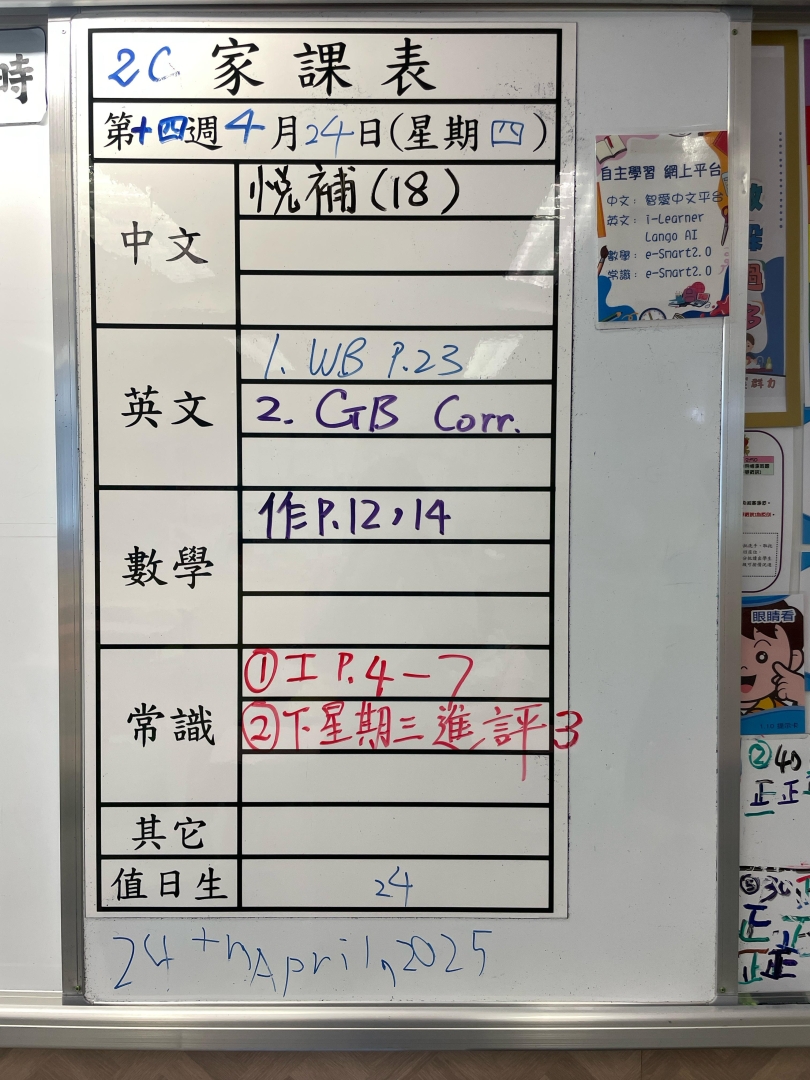 時
2C 家課表
第十四週4月24日(星期四)
中文
悅補(18)
英文
1. WB P.23
2. GB Corr.
數學
作P.12,14
常識
①工 P.4-7
②下星期三進評3
其它
值日生
24
24th April, 2025
自主學習 網上平台
中文：智愛中文平台
英文：i-Learner
Lango AI
數學：e-Smart2.0
常識：e-Smart2.0
眼睛看
②40
正正
⑤30
正
正正